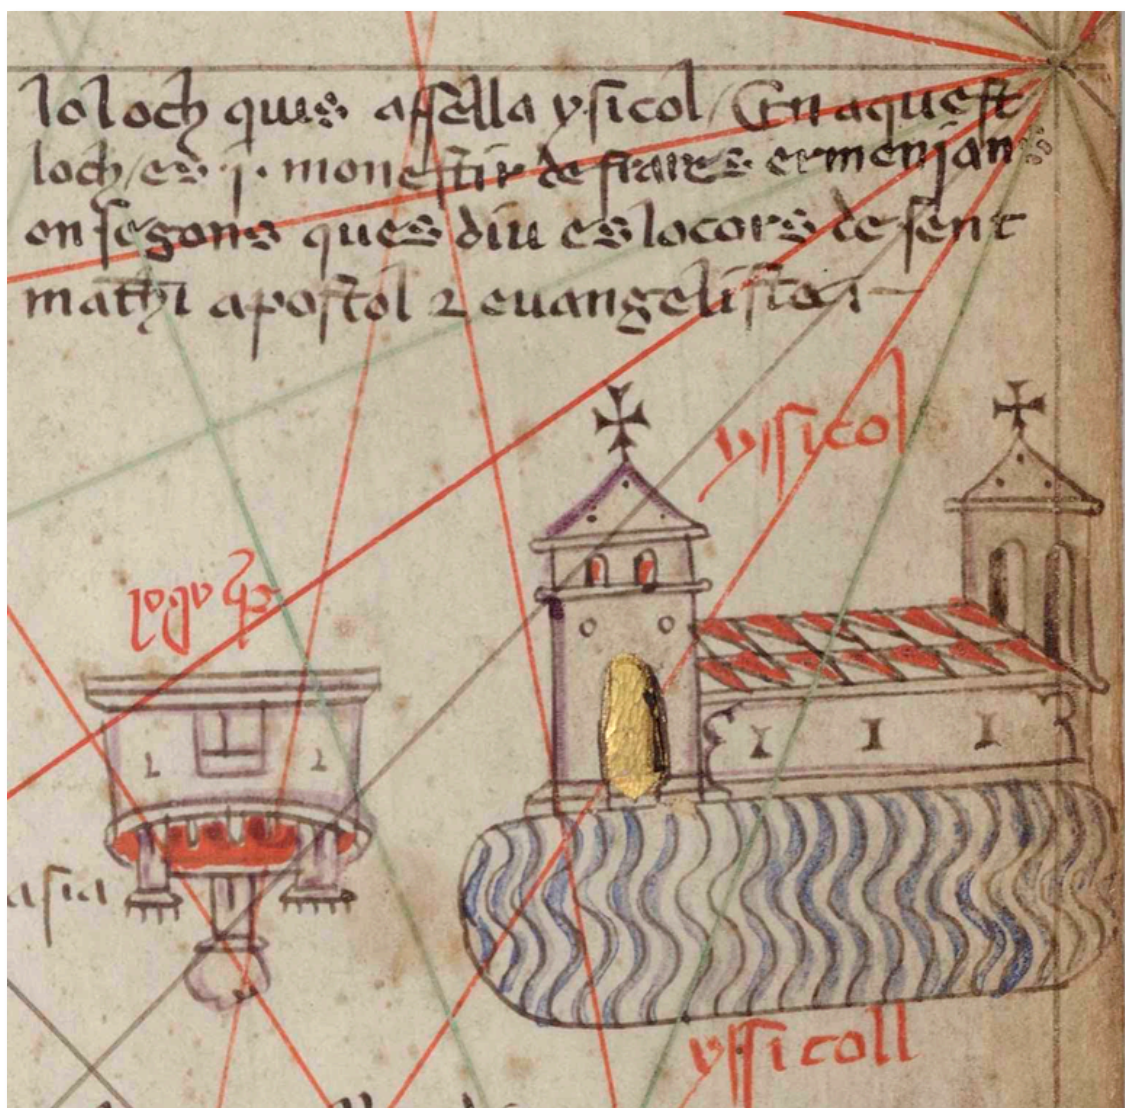 lo loch quis apella ysicol / En aquest
loch / es .j. monestir de frares ermenian
on segons ques diu es lo cors de sent
mathi apostol 2 euangelista
yssicol
asia
yssicoll